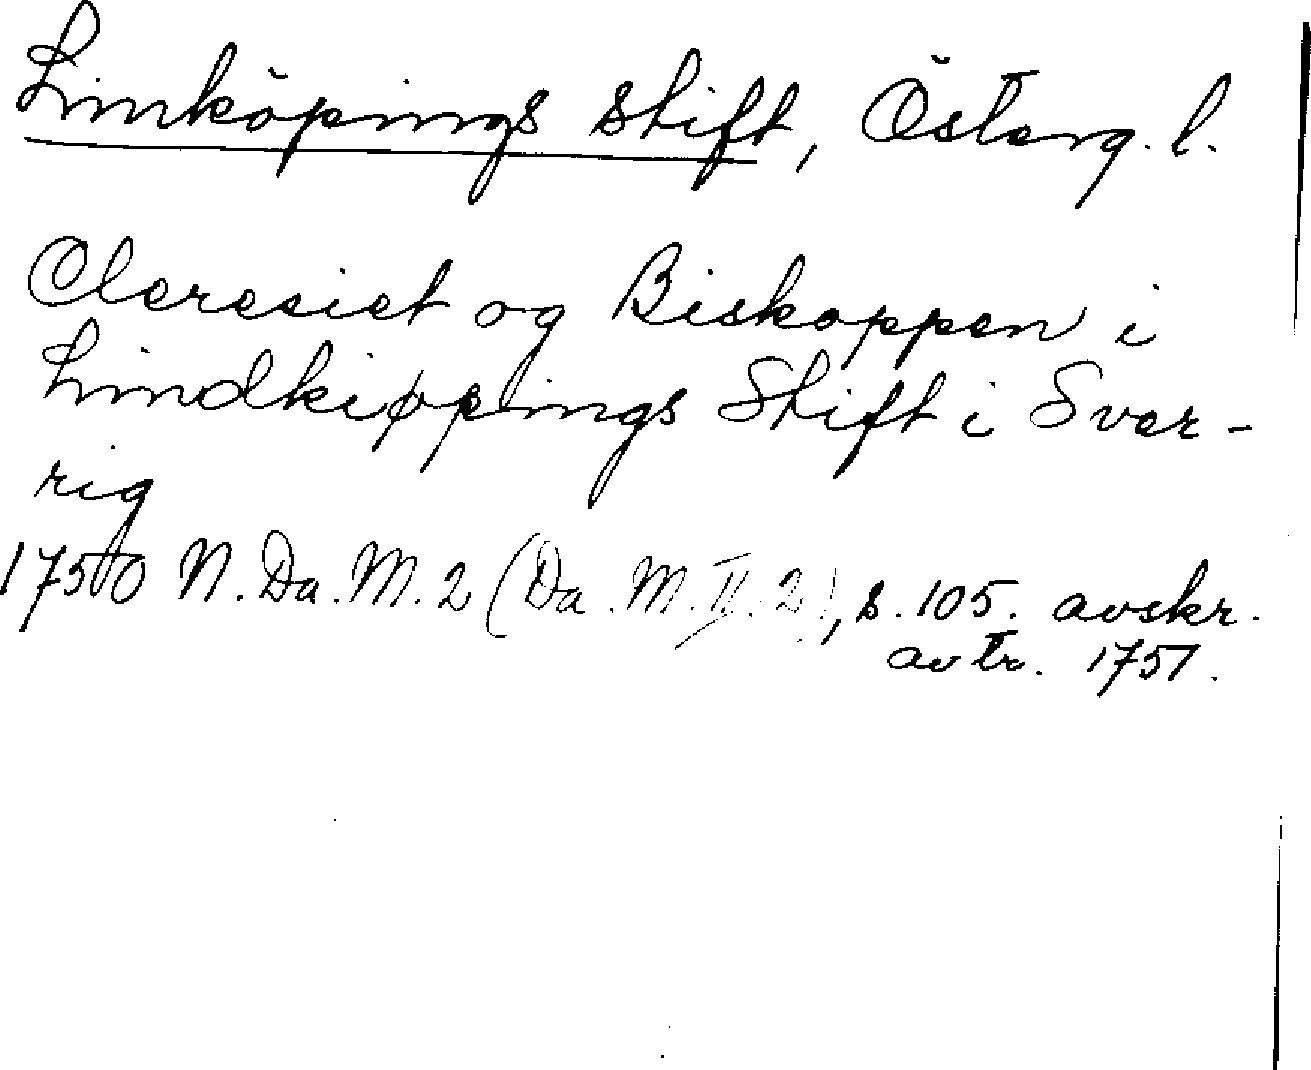 Linköpings stift, Österg. l.
Cleresiet og Biskoppen i
Lindkiøpings Stift i Sver-
rig
1750 N. Da. M. 2 (Da. M. II. 2), s. 105. avskr.
avtr. 1751.